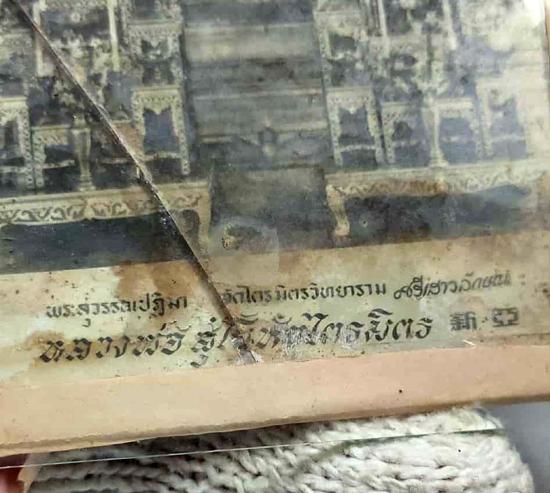 พระสุวรรณปฏิมา วัดไตรมิตรวิทยาราม ศรีเสาวลักษณ์
หลวงพ่อ วัดไตรมิตร 新